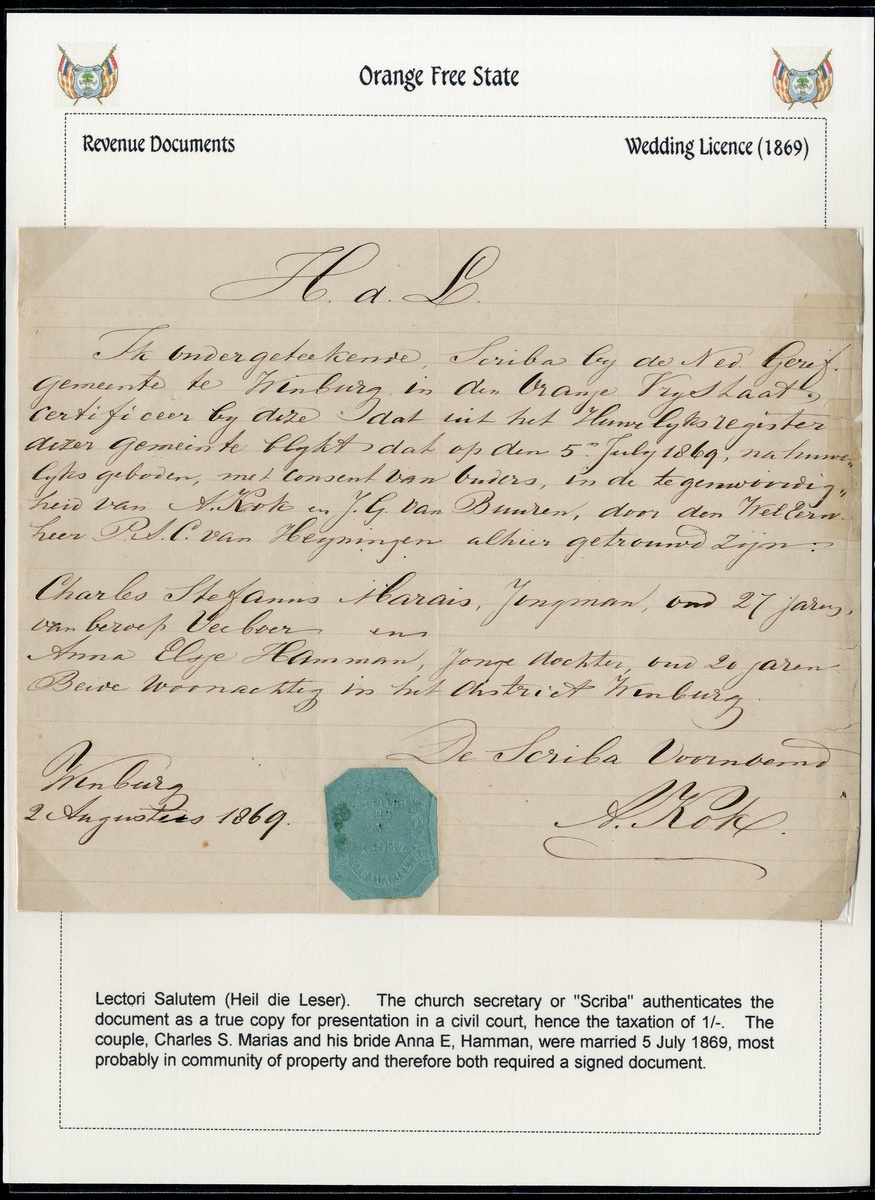 Orange Free State
Revenue Documents
Wedding Licence (1869)
H. d. L.
Ik ondergeteekende, Scriba by de Ned. Geref.
gemeente te Winburg in den Oranje VryStaat,
certificeer by deze dat uit het Huwelyksregister
dezer gemeente blykt dat op den 5n July 1869, na huwe„
lyks geboden, met consent van ouders, in de tegenwoordig„
heid van A. Kok en J. G. van Buuren, door den WelEerw.
heer P. S. C. van Heyningen alhier getrouwd zijn:
Charles Stefanus Marais, Jongman, oud 27 jaren,
van beroep Veeboer en
Anna Elsje Hamman, Jonge dochter, oud 20 jaren
Beide woonachtig in het district Winburg.
De Scriba Voornoemd
Winburg
2 Augustus 1869.
A. Kok.
Lectori Salutem (Heil die Leser). The church secretary or "Scriba" authenticates the
document as a true copy for presentation in a civil court, hence the taxation of 1/-. The
couple, Charles S. Marias and his bride Anna E, Hamman, were married 5 July 1869, most
probably in community of property and therefore both required a signed document.